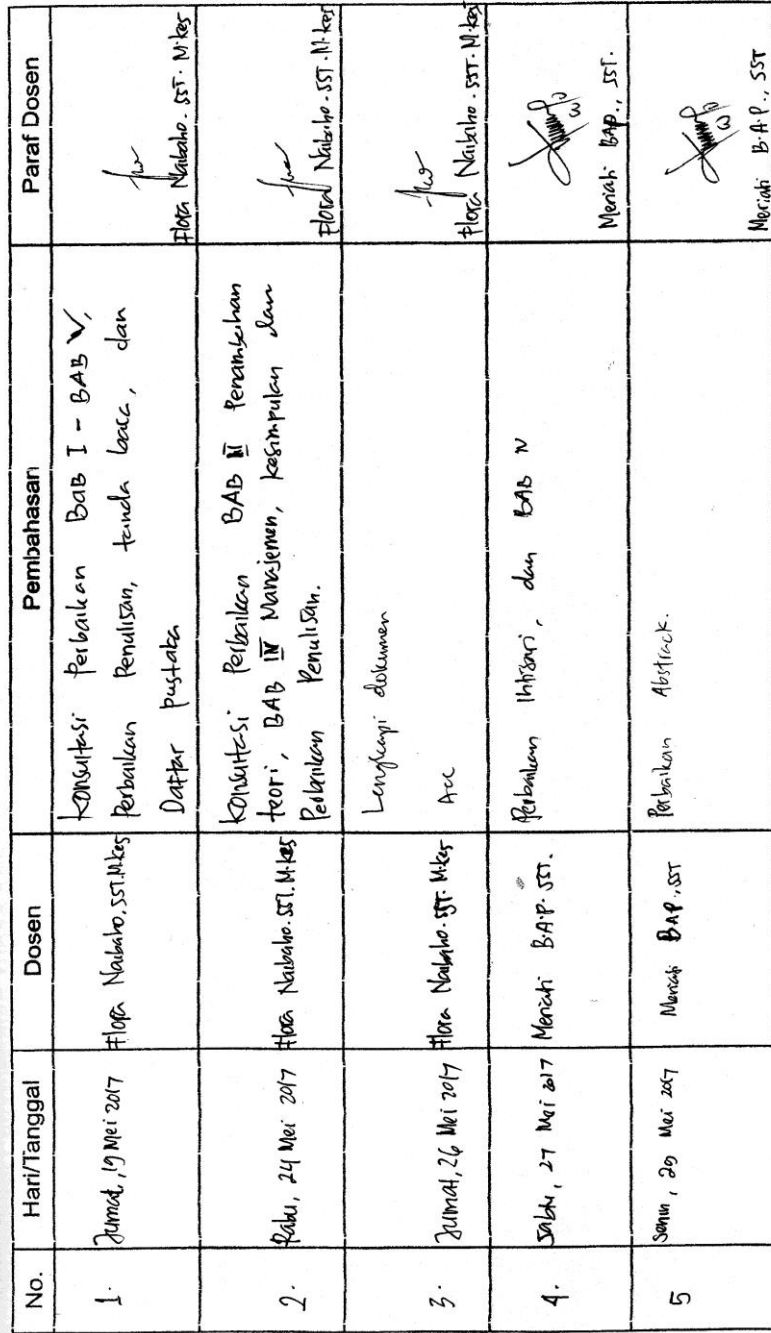 No. Hari/Tanggal Dosen Pembahasan Paraf Dosen
1. Jumat, 19 Mei 2017 Flora Naibaho, SST. M.kes Konsultasi Perbaikan BaB I - BAB V,
Perbaikan Penulisan, tanda baca, dan
Daftar pustaka
Flora Naibaho. SST. M.kes
2. Rabu, 24 Mei 2017 Flora Naibaho. SST. M.kes Konsultasi Perbaikan BAB II Penambahan
teori, BAB IV Manajemen, kesimpulan dan
Perbaikan Penulisan.
Flora Naibaho. SST. M.kes
3. Jumat, 26 Mei 2017 Flora Naibaho. SST. M.kes Lengkapi dokumen
Acc
Flora Naibaho. SST. M.kes
4. Sabtu, 27 Mei 2017 Meriati B.A.P. SST. Perbaikan Ihtisari, dan BAB IV
Meriati BAP., SST.
5 Senin, 29 Mei 2017 Meriati BAP., SST Perbaikan Abstrack.
Meriati B.A.P., SST